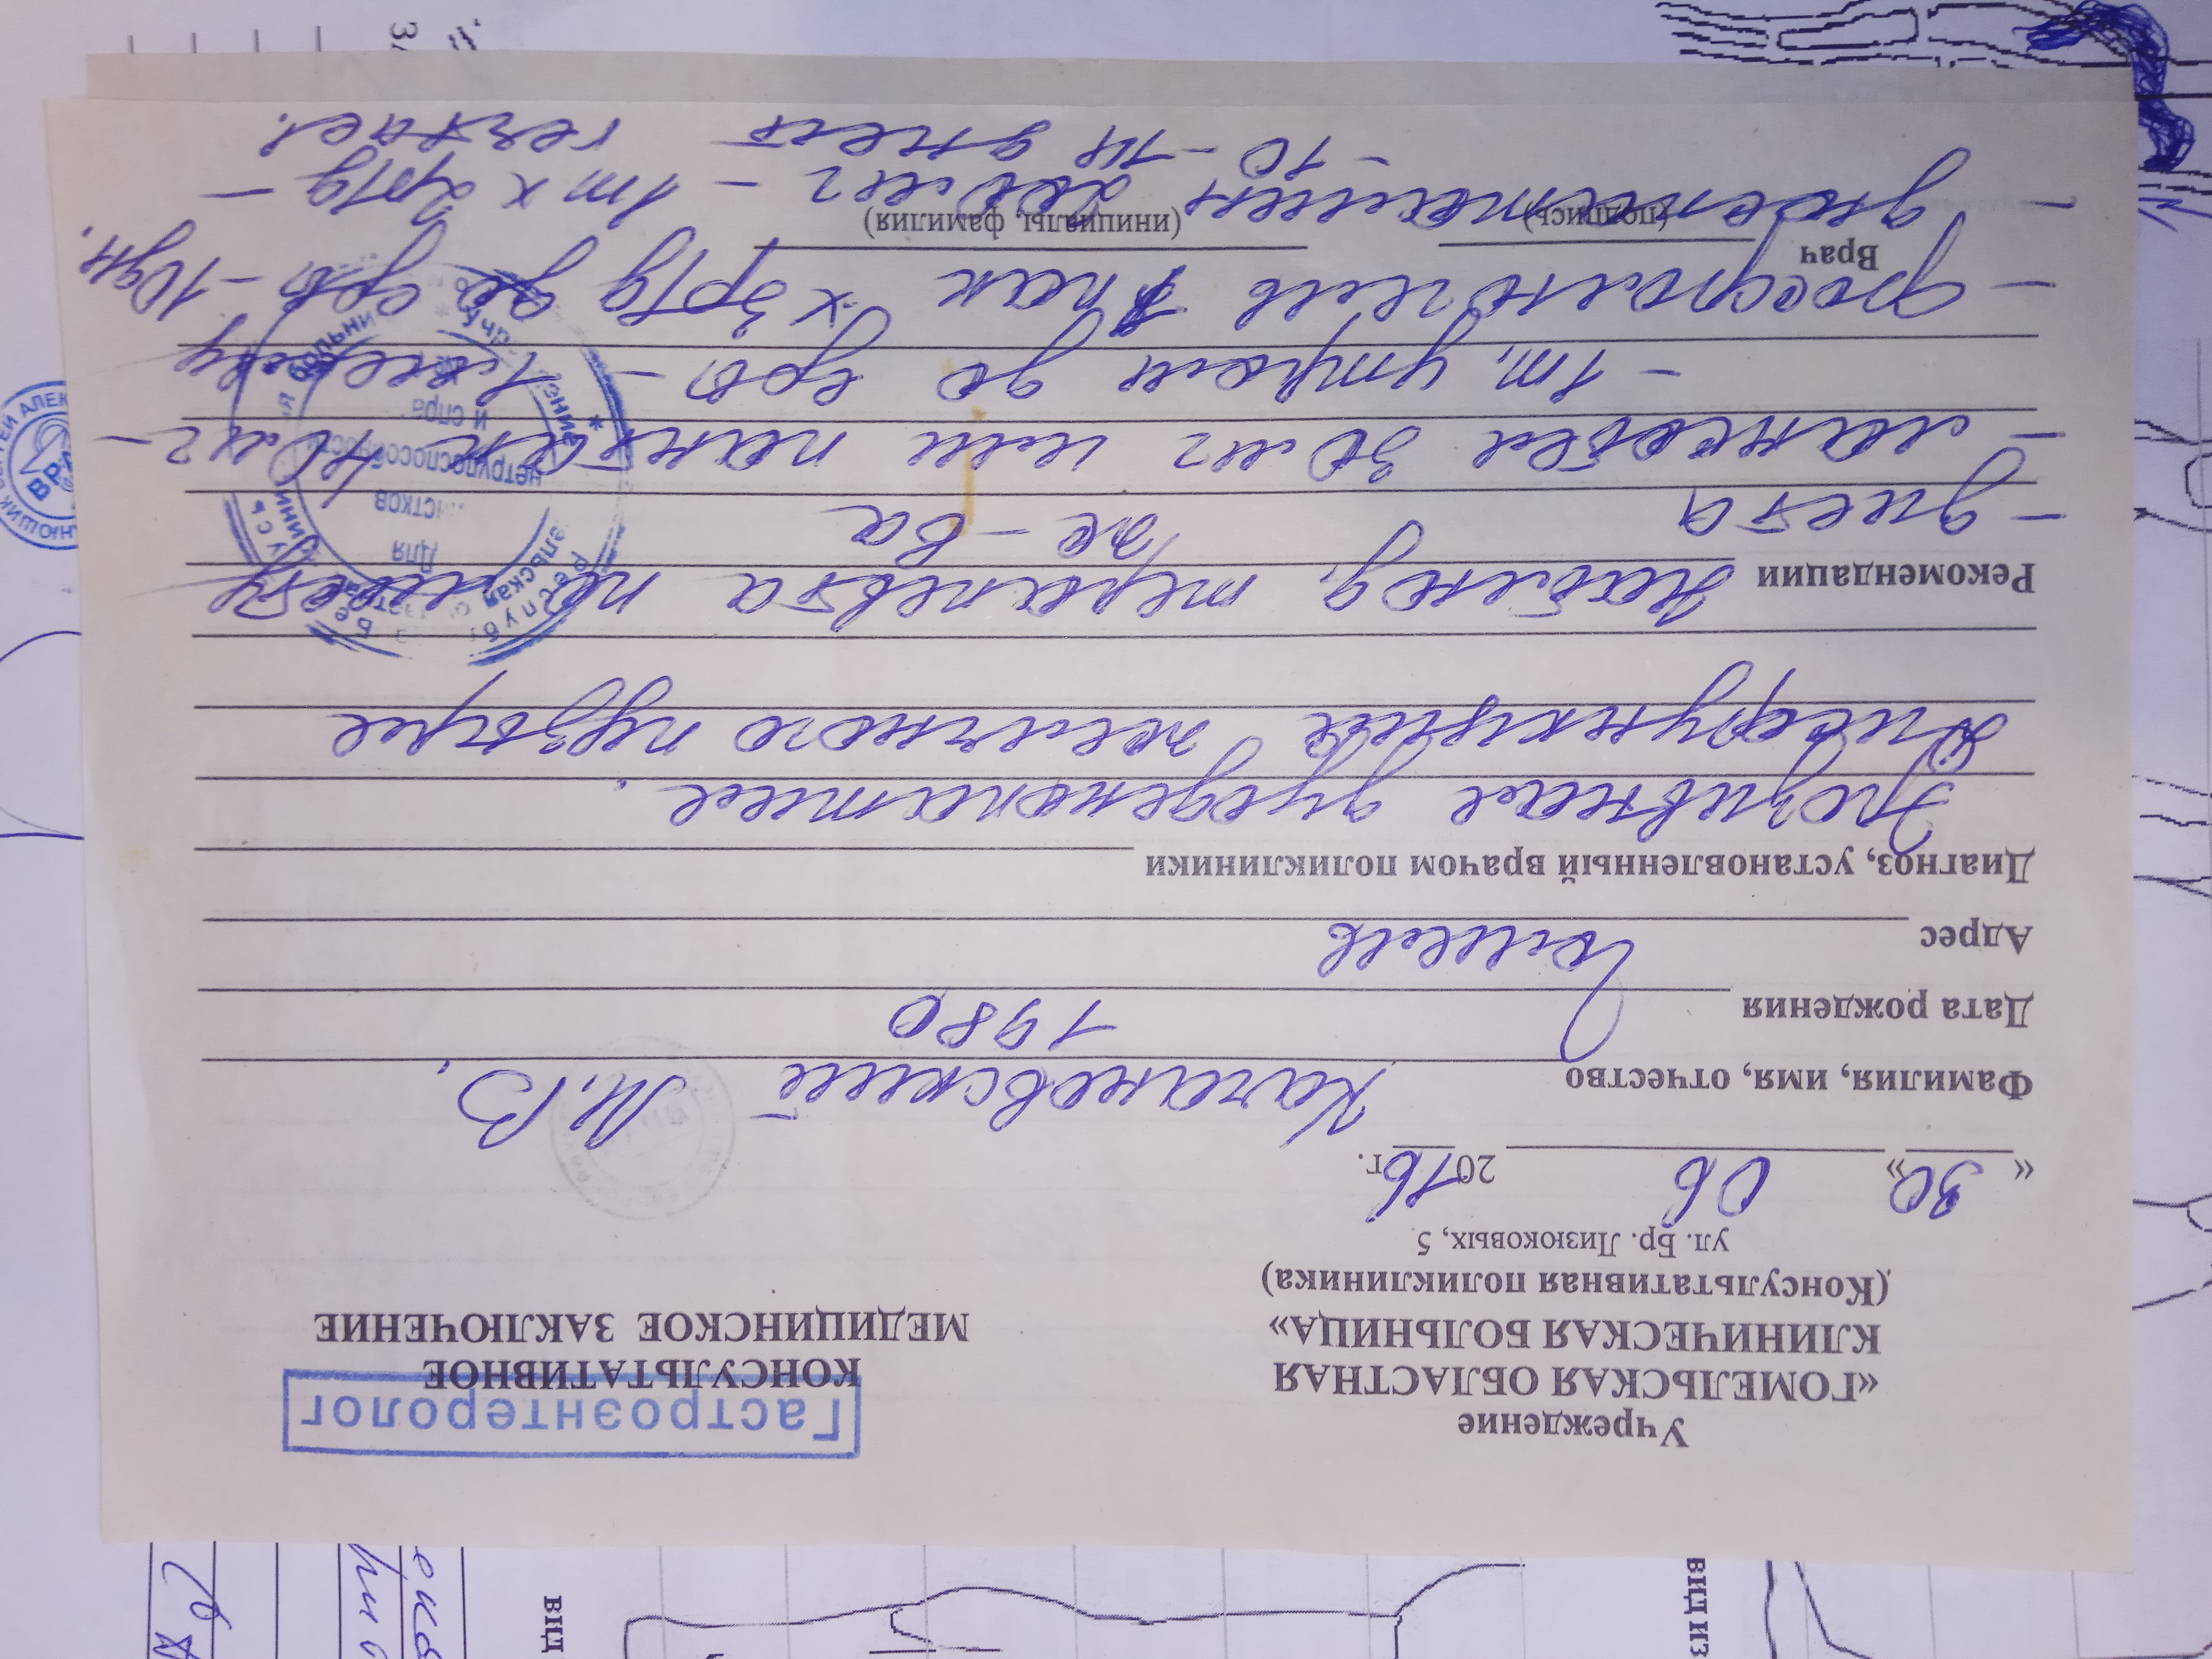 ВИД ИЗ
ВИД
Гастроэнтеролог
Учреждение
«ГОМЕЛЬСКАЯ ОБЛАСТНАЯ
КЛИНИЧЕСКАЯ БОЛЬНИЦА»
(Консультативная поликлиника)
ул. Бр. Лизюковых, 5
КОНСУЛЬТАТИВНОЕ
МЕДИЦИНСКОЕ ЗАКЛЮЧЕНИЕ
«30» 06 2016г.
Фамилия, имя, отчество Качановский М.В.
Дата рождения 1980
Адрес Гомель
Диагноз, установленный врачом поликлиники
Эрозивная дуоденопатия.
Дисфункция желчного пузыря
Рекомендации Наблюд. терапевта по месту
ж-ва
- диета
- лансобел 30 мг или пантап 40 мг -
- 1т. утром до еды - 1 месяц
- фосфалюгель 1 пак х 3р/д до еды - 10 дн.
Врач
(подпись) (инициалы, фамилия)
- дюспаталин 200 мг - 1т х 2р/д -
- 10 - 14 дней
Для
нетрудоспособности
и спра